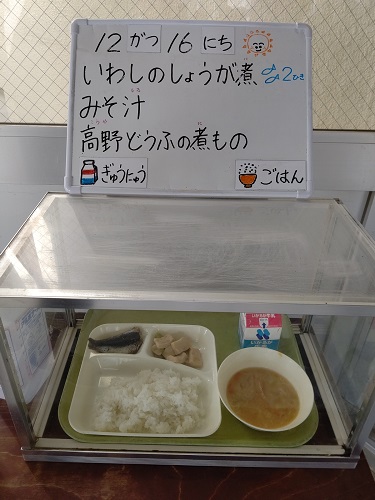 12 がつ 16 にち
いわしのしょうが煮 2ひき
みそ汁
高野どうふの煮もの
ぎゅうにゅう
ごはん